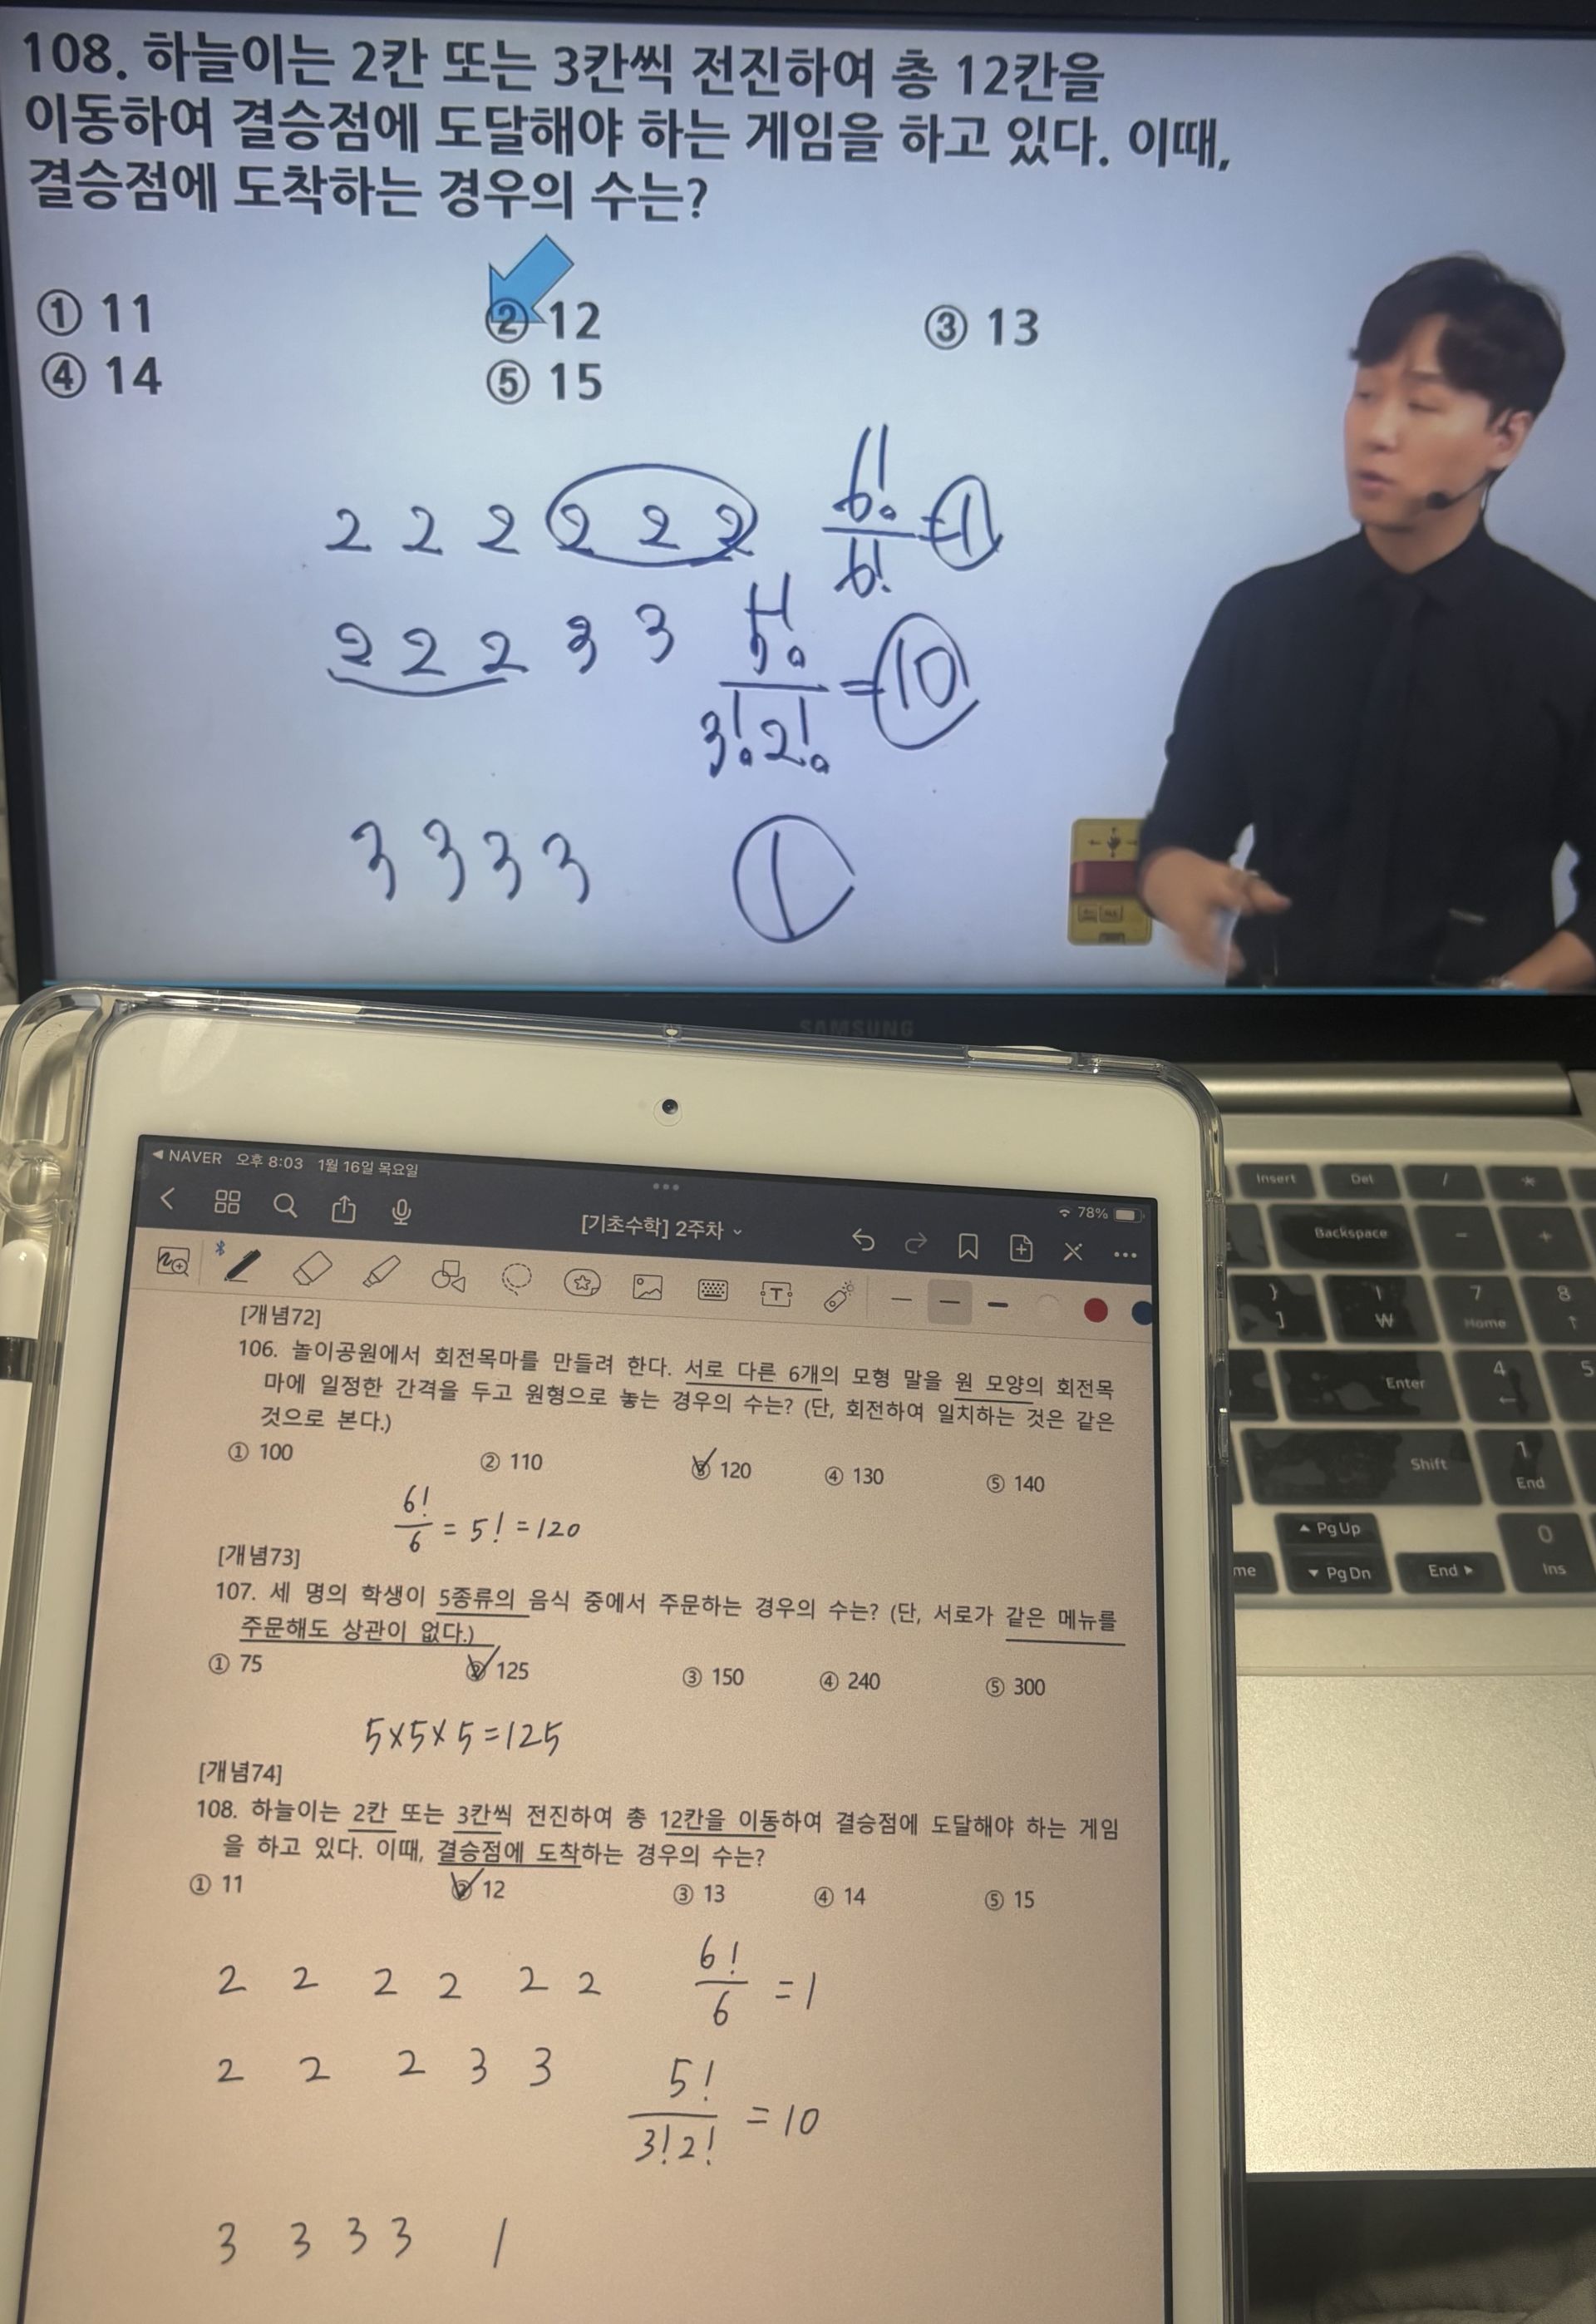 108. 하늘이는 2칸 또는 3칸씩 전진하여 총 12칸을
이동하여 결승점에 도달해야 하는 게임을 하고 있다. 이때,
결승점에 도착하는 경우의 수는?
① 11 ② 12 ③ 13
④ 14 ⑤ 15
2 2 2 2 2 2 6!/6! = 1
2 2 2 3 3 5!/3!2! = 10
3 3 3 3 1
SAMSUNG
◀ NAVER 오후 8:03 1월 16일 목요일
78%
[기초수학] 2주차
[개념72]
106. 놀이공원에서 회전목마를 만들려 한다. 서로 다른 6개의 모형 말을 원 모양의 회전목
마에 일정한 간격을 두고 원형으로 놓는 경우의 수는? (단, 회전하여 일치하는 것은 같은
것으로 본다.)
① 100 ② 110 ③ 120 ④ 130 ⑤ 140
6!/6 = 5! = 120
[개념73]
107. 세 명의 학생이 5종류의 음식 중에서 주문하는 경우의 수는? (단, 서로가 같은 메뉴를
주문해도 상관이 없다.)
① 75 ② 125 ③ 150 ④ 240 ⑤ 300
5×5×5=125
[개념74]
108. 하늘이는 2칸 또는 3칸씩 전진하여 총 12칸을 이동하여 결승점에 도달해야 하는 게임
을 하고 있다. 이때, 결승점에 도착하는 경우의 수는?
① 11 ② 12 ③ 13 ④ 14 ⑤ 15
2 2 2 2 2 2 6!/6 = 1
2 2 2 3 3 5!/3!2! = 10
3 3 3 3 1
Insert Del / *
Backspace - +
} ] | ₩ 7 Home 8 ↑
Enter 4 ← 5
Shift 1 End
▲ PgUp 0 Ins
me ▼ PgDn End ▶